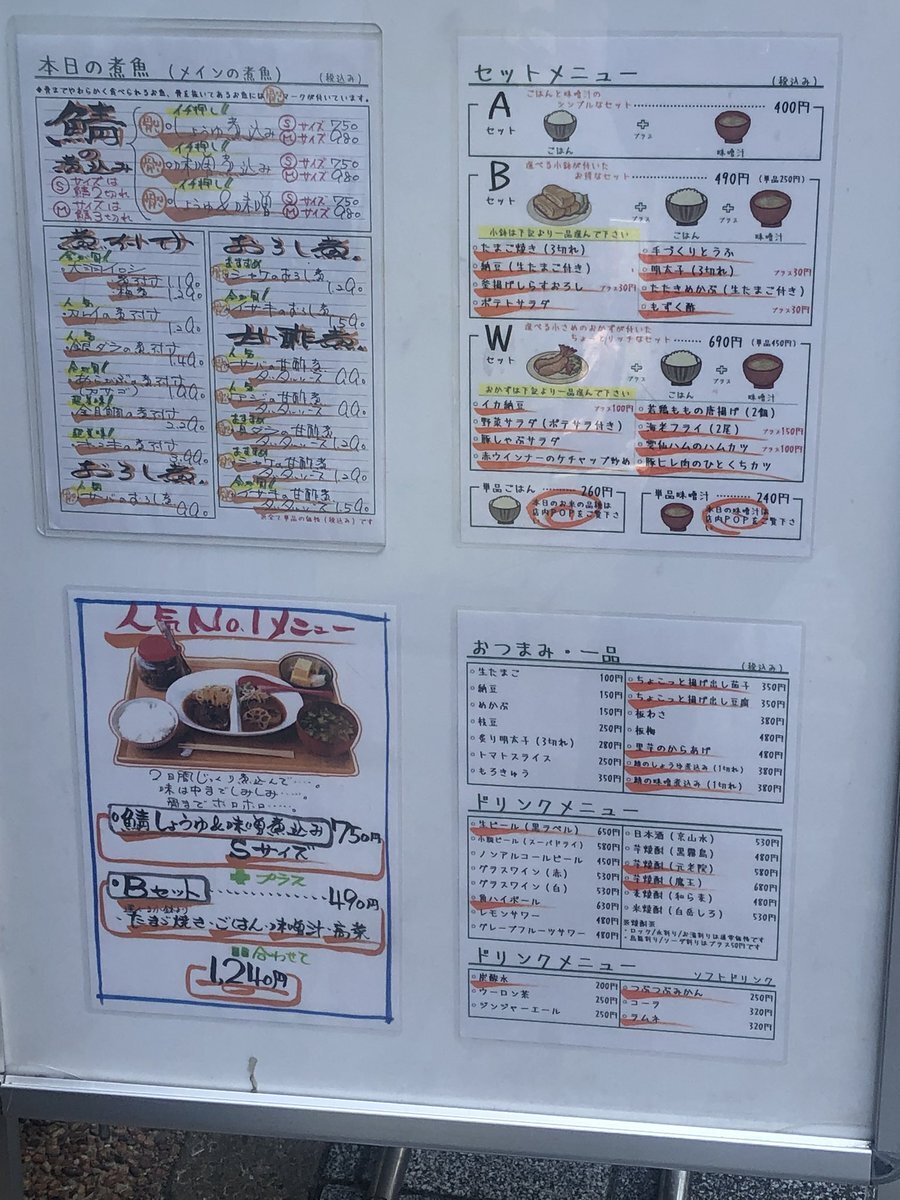 本日の煮魚 (メインの煮魚) (税込み)
※骨までやわらかく食べられるお魚、骨を抜いてあるお魚には マークが付いています。
鯖の煮込み
Sサイズは鯖2切れ
Mサイズは鯖3切れ
イチ押し!!
しょうゆ煮込み Sサイズ 750 Mサイズ 980
イチ押し!!
味噌煮込み Sサイズ 750 Mサイズ 980
イチ押し!!
しょうゆ&味噌 Sサイズ 750 Mサイズ 980
煮付け
人気
カレイの煮付け 1,200
人気
銀ダラの煮付け
金目鯛の煮付け
おろし煮
人気
サバのおろし煮
おろし煮
おすすめ
シャケのおろし煮
甘酢煮
※全て単品の価格(税込み)です
セットメニュー (税込み)
Aセット
ごはんと味噌汁のシンプルなセット 400円
ごはん + プラス 味噌汁
Bセット
選べる小鉢が付いたお得なセット 490円 (単品250円)
+ プラス ごはん + プラス 味噌汁
小鉢は下記より一品選んで下さい
○たまご焼き(3切れ)
○納豆(生たまご付き)
○釜揚げしらすおろし プラス30円
○ポテトサラダ
○手づくりとうふ
○明太子(3切れ) プラス30円
○たたきめかぶ(生たまご付き)
○もずく酢 プラス30円
Wセット
選べる小さめのおかずが付いたちょーっとリッチなセット 690円 (単品450円)
+ プラス ごはん + プラス 味噌汁
おかずは下記より一品選んで下さい
○イカ納豆 プラス100円
○野菜サラダ(ポテサラ付き)
○豚しゃぶサラダ
○赤ウインナーのケチャップ炒め
○若鶏ももの唐揚げ(2個)
○海老フライ(2尾) プラス150円
○雲仙ハムのハムカツ プラス100円
○豚ヒレ肉のひとくちカツ
単品ごはん 260円
本日のお米の品種は店内POPをご覧下さい
単品味噌汁 240円
本日の味噌汁は店内POPをご覧下さい
人気No.1メニュー
2日間じっくり煮込んで……
味は中までしみしみ……
骨までホロホロ……
・鯖しょうゆ&味噌煮込み 750円
Sサイズ
+プラス
・Bセット 490円
・たまご焼き・ごはん・味噌汁・高菜
合わせて
1,240円
おつまみ・一品 (税込み)
○生たまご 100円
○納豆 150円
○めかぶ 150円
○枝豆 250円
○炙り明太子(3切れ) 280円
○トマトスライス 250円
○もろきゅう 350円
○ちょこっと揚げ出し茄子 350円
○ちょこっと揚げ出し豆腐 350円
○板わさ 380円
○板梅 480円
○里芋のからあげ 480円
○鯖のしょうゆ煮込み(1切れ) 380円
○鯖の味噌煮込み(1切れ) 380円
ドリンクメニュー
○生ビール(黒ラベル) 650円
○小瓶ビール(スーパードライ) 580円
○ノンアルコールビール 450円
○グラスワイン(赤) 530円
○グラスワイン(白) 530円
○角ハイボール 630円
○レモンサワー 480円
○グレープフルーツサワー 480円
○日本酒(京山水) 530円
○芋焼酎(黒霧島) 480円
○芋焼酎(元老院) 580円
○芋焼酎(魔王) 680円
○麦焼酎(和ら麦) 480円
○米焼酎(白岳しろ) 530円
※焼酎類
・ロック/水割り/お湯割りは通常価格です
・烏龍割り/ソーダ割りはプラス50円です
ドリンクメニュー ソフトドリンク
○炭酸水 200円
○ウーロン茶 250円
○ジンジャーエール 250円
○つぶつぶみかん 250円
○コーラ 320円
○ラムネ 320円